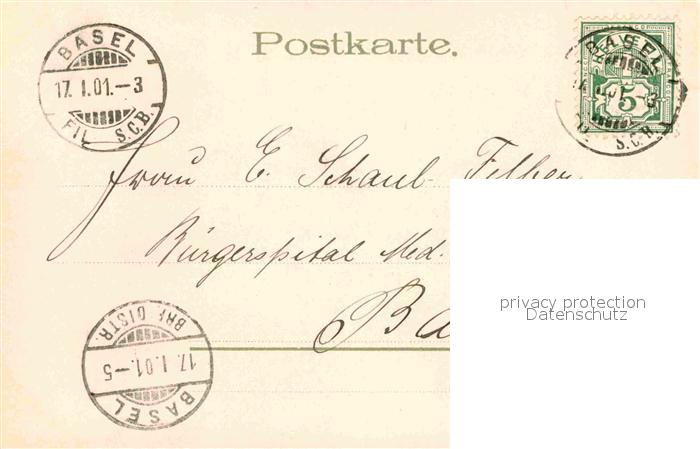 Postkarte.
BASEL
17. I. 01. – 3
FIL. S.C.B.
BASEL
I. 01. – 3
S.C.B.
5
Frau E. Schaub-Felber
Bürgerspital Med.
Ba
privacy protection
Datenschutz
BRF. DISTR.
17. I. 01. – 5
BASEL